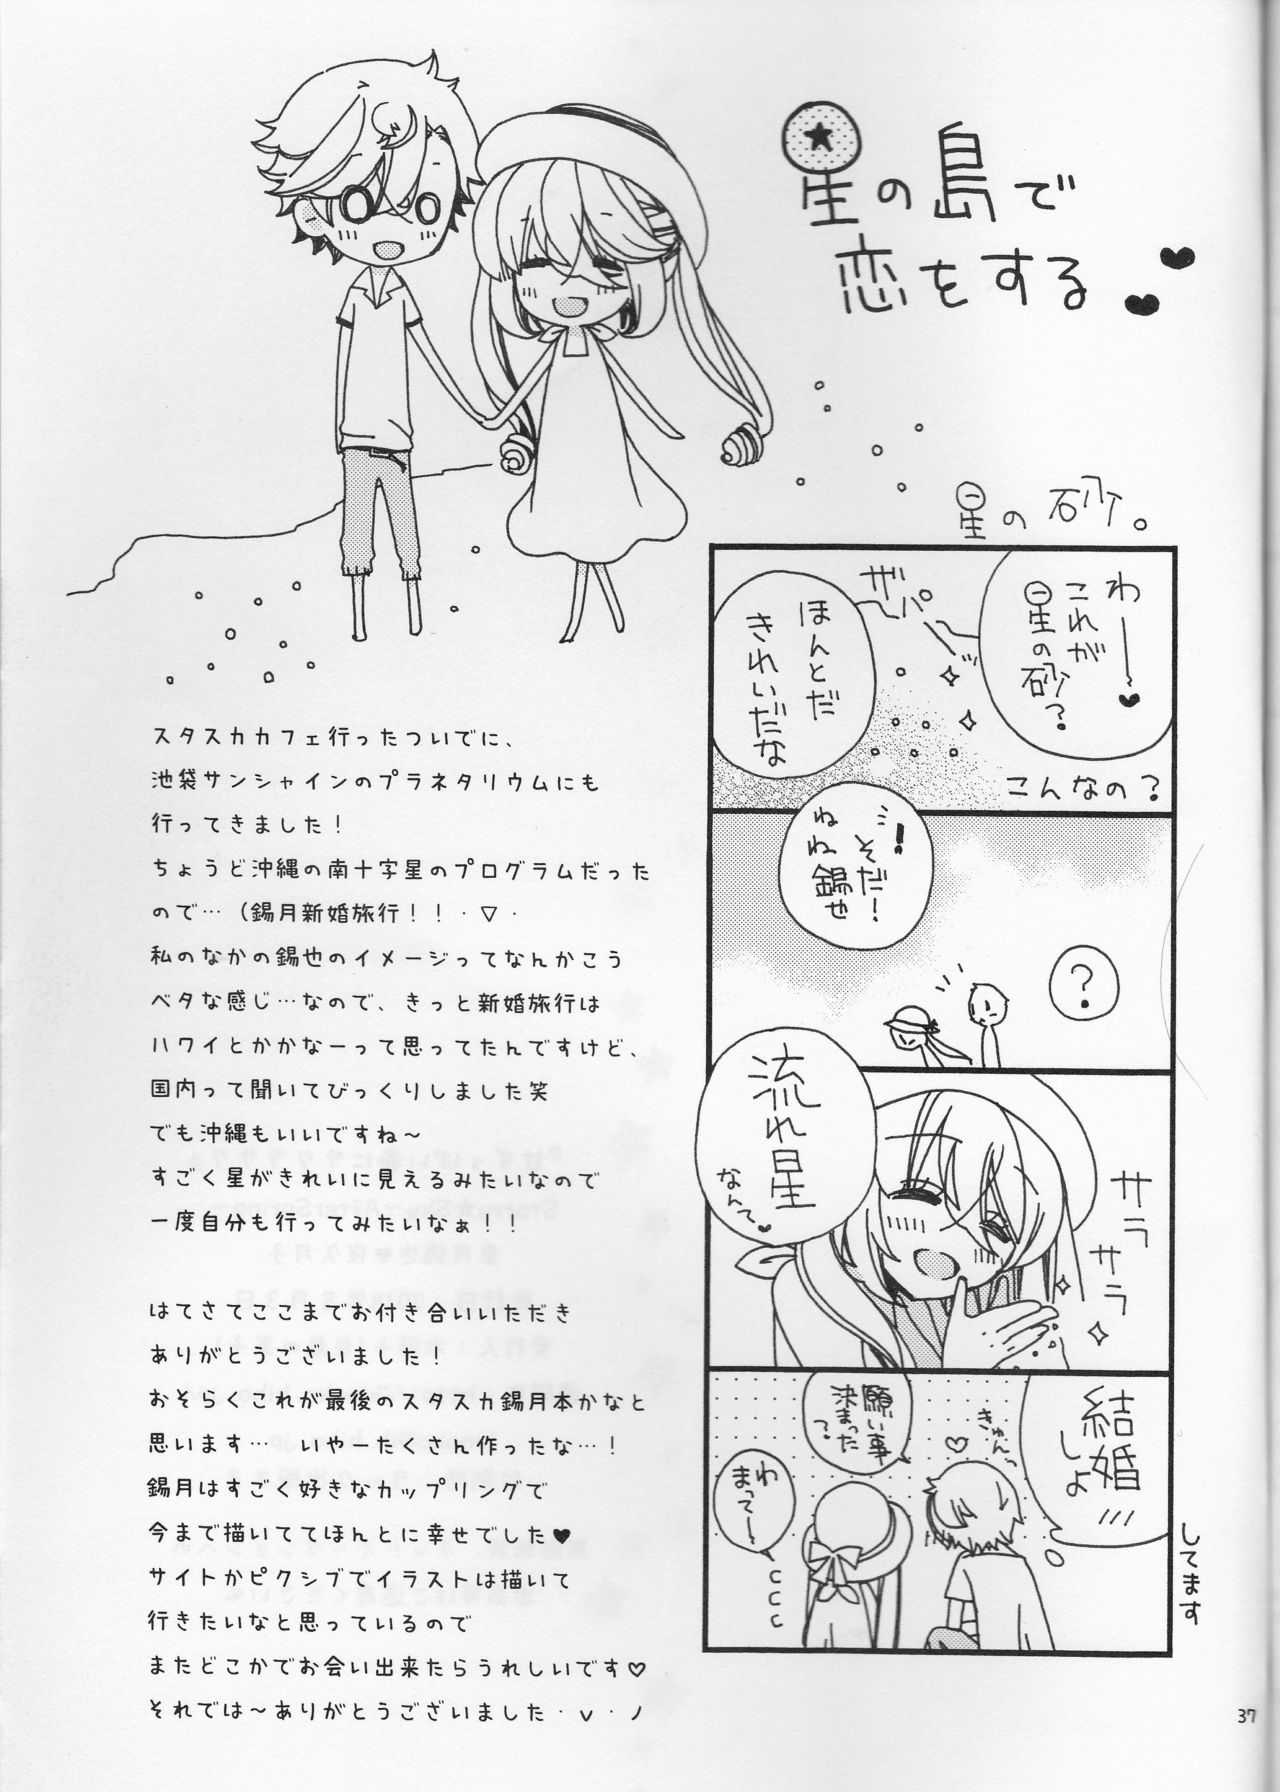 星の島で
恋をする
星の砂。
わーー
これが
星の砂?
ザパ
ほんとだ
きれいだな
こんなの?
!
そだ!
ねね錫也
?
流れ星
なんて
サラ
サラ
結婚
しよ
きゅん
願い事
決まった
?
わ
まってー
してます
スタスカカフェ行ったついでに、
池袋サンシャインのプラネタリウムにも
行ってきました!
ちょうど沖縄の南十字星のプログラムだった
ので…(錫月新婚旅行!!・▽・
私のなかの錫也のイメージってなんかこう
ベタな感じ…なので、きっと新婚旅行は
ハワイとかかなーって思ってたんですけど、
国内って聞いてびっくりしました笑
でも沖縄もいいですね～
すごく星がきれいに見えるみたいなので
一度自分も行ってみたいなぁ!!
はてさてここまでお付き合いいただき
ありがとうございました!
おそらくこれが最後のスタスカ錫月本かなと
思います… いやーたくさん作ったな…!
錫月はすごく好きなカップリングで
今まで描いててほんとに幸せでした♥
サイトかピクシブでイラストは描いて
行きたいなと思っているので
またどこかでお会い出来たらうれしいです♡
それでは～ありがとうございました・v・ノ
37